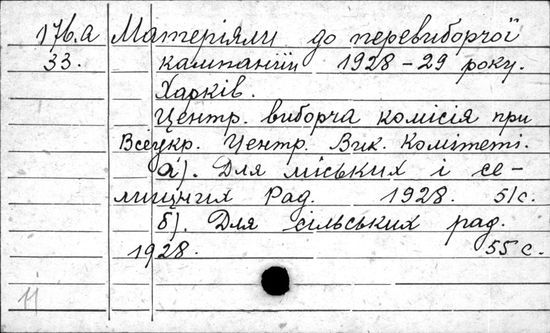 176.а Матеріяли до перевиборчої
33. кампанії 1928-29 року.
Харків.
Центр. виборча комісія при
Всеукр. Центр. Вик. Комітеті.
а). Для міських і се-
лищних Рад. 1928. 51с.
б). Для сільських рад.
1928. 55 с.
11